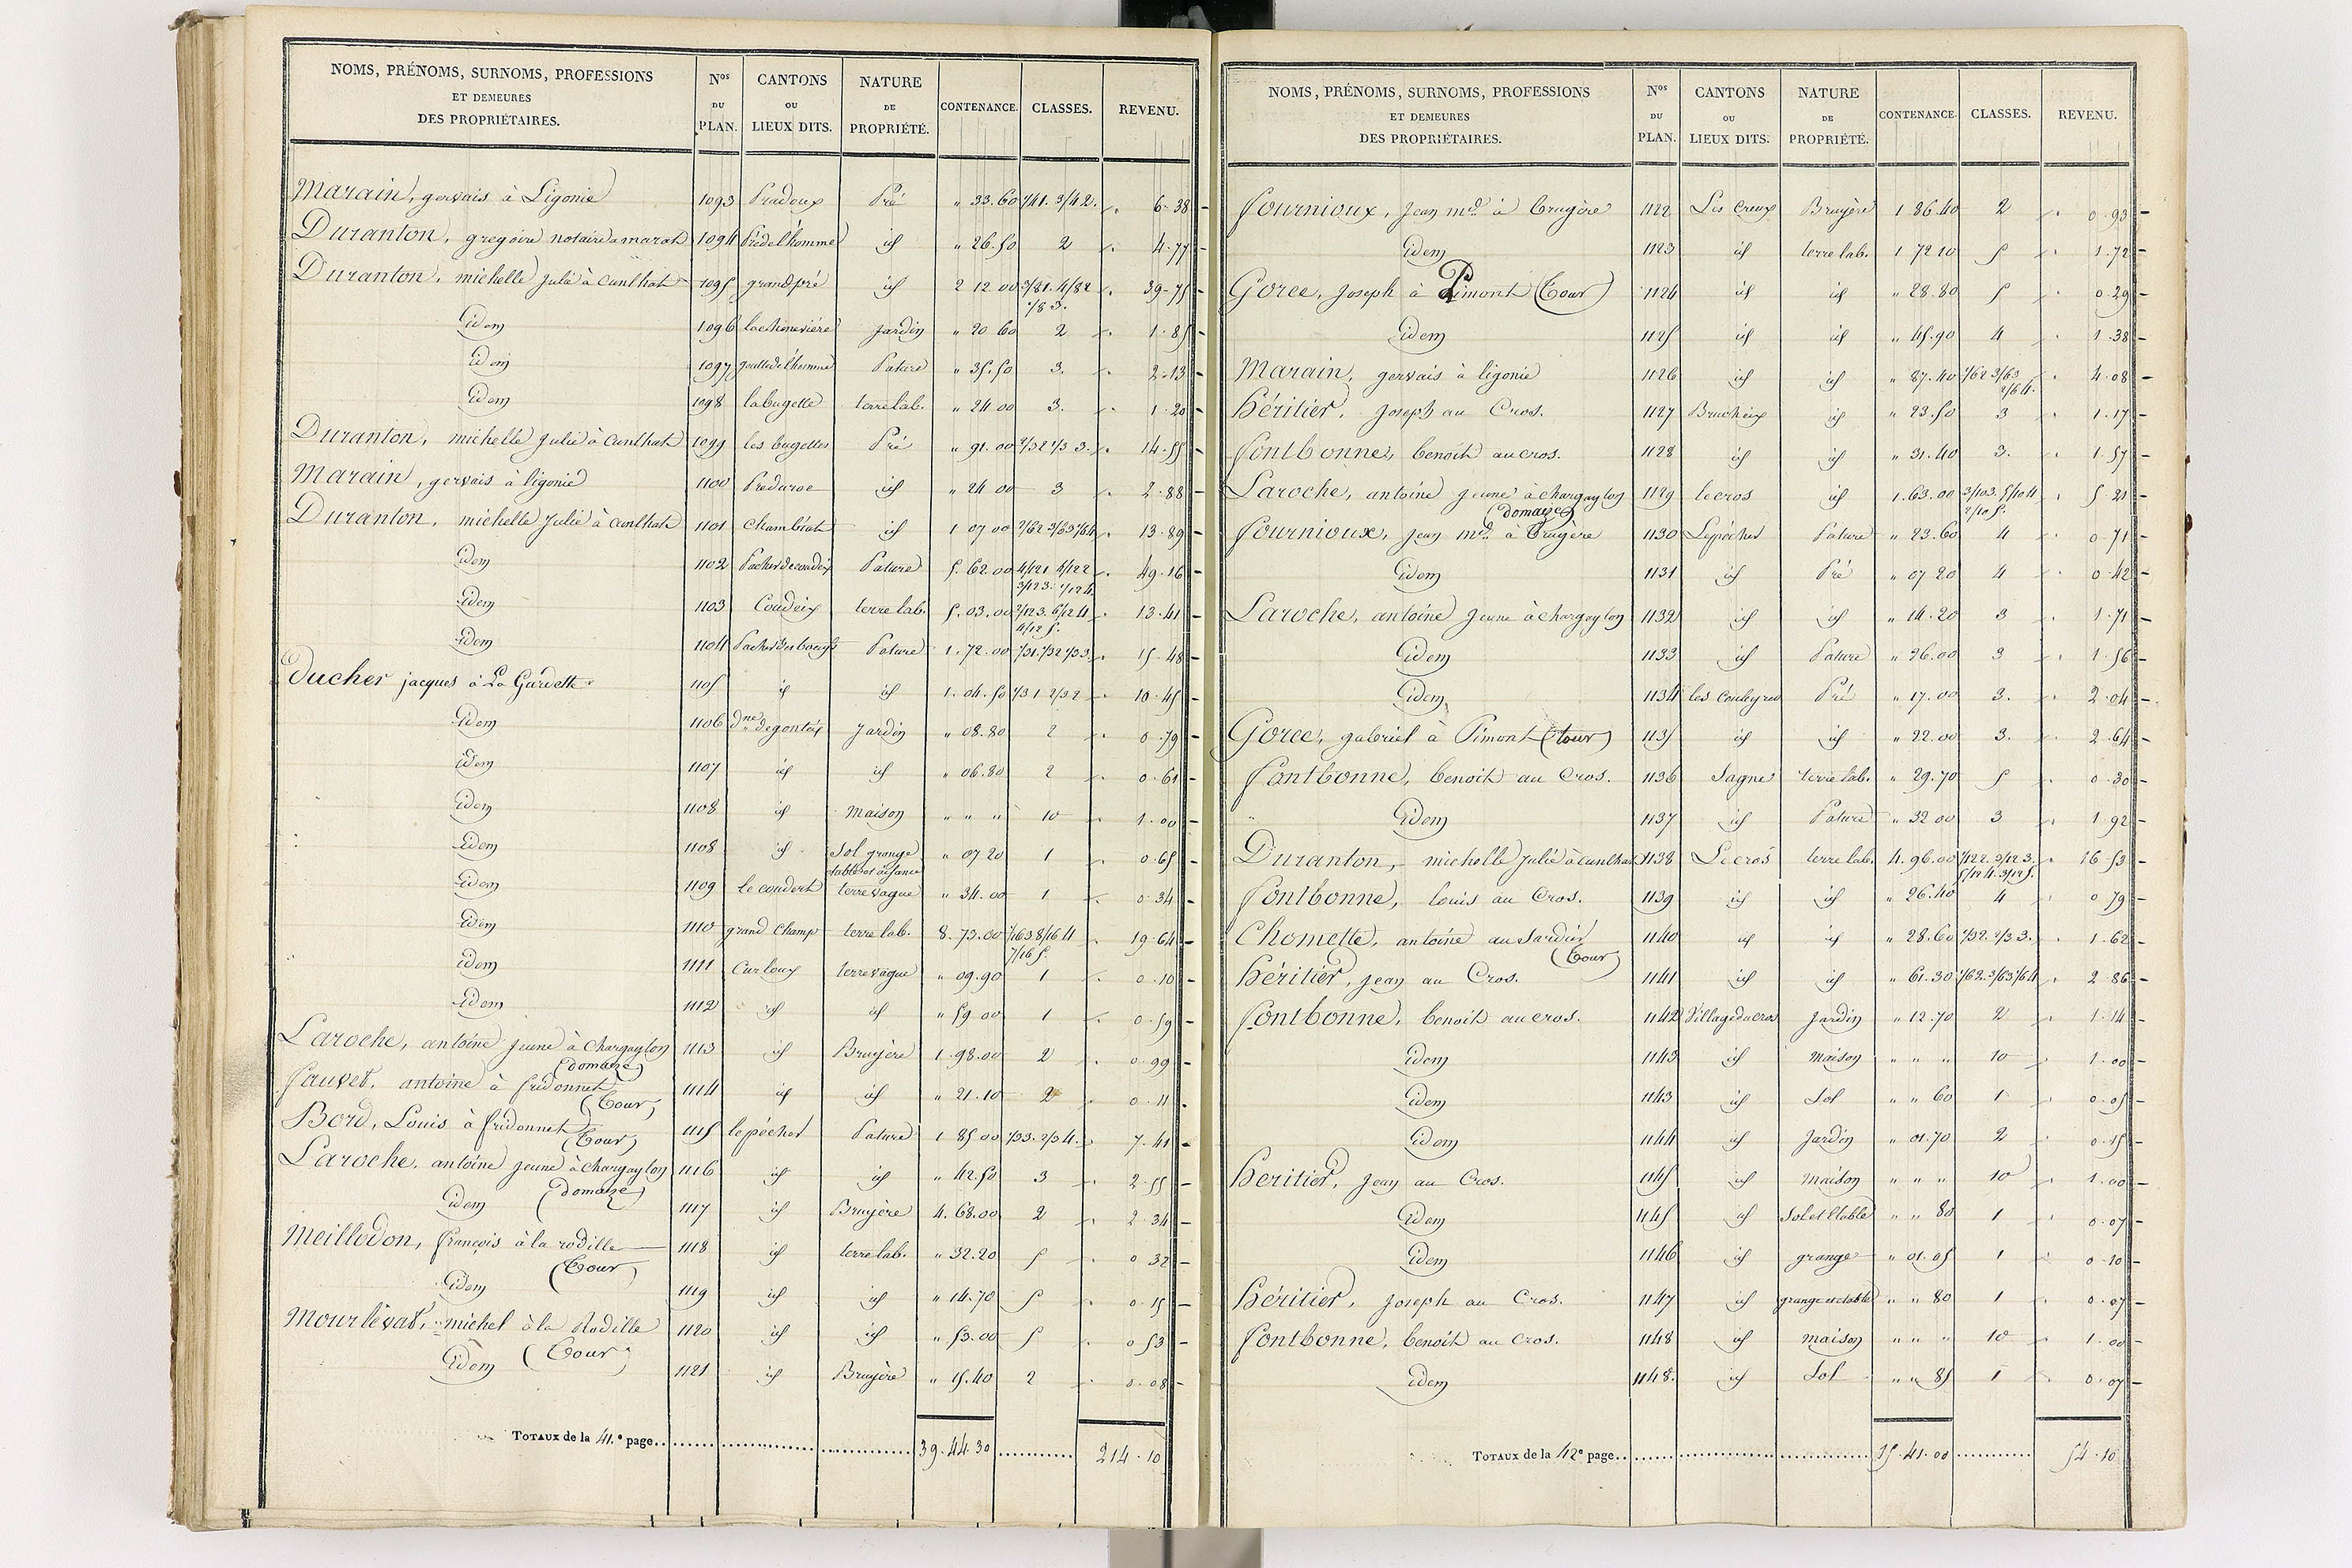 NOMS, PRÉNOMS, SURNOMS, PROFESSIONS ET DEMEURES DES PROPRIÉTAIRES. Nos DU PLAN. CANTONS OU LIEUX DITS. NATURE DE PROPRIÉTÉ. CONTENANCE. CLASSES. REVENU.
Marain, gervais à Ligonie 1093 Pradoux Pré " 33.60 1/41. 3/42. 6.38
Duranton, gregoire notaire a marat 1094 Prédelhomme id " 26.50 2 4.77
Duranton, michelle Julie à Cunlhat 1095 grandpré id 2 12 00 3/81. 4/82 1/83. 39.75
Idem 1096 lachenevière Jardin " 20 60 2 1.85
Idem 1097 Pature " 35.50 3. 2.13
Idem 1098 labugette terre lab. " 24 00 3. 1.20
Duranton, michelle Julie à Cunlhat 1099 les bugettes Pré " 91.00 2/32 1/3 3. 14.55
Marain, gervais à ligonie 1100 id " 24 00 3 2.88
Duranton, michelle Julie à Cunlhat 1101 Chambérat id 1 07 00 2/62 3/63 1/64 13.89
Idem 1102 Pature 5.62.00 4/121 4/122 3/123. 1/124 49.16
Idem 1103 Coudeix terre lab. 5.03.00 2/123. 6/124 4/125. 13.41
Idem 1104 Pature 1.72.00 1/31. 1/32 1/33. 15.48
Ducher jacques à La Gardette 1105 id id 1.04.50 1/31 2/32 10.45
Idem 1106 Jardin " 08.80 2 0.79
Idem 1107 id id " 06.80 2 0.61
Idem 1108 id Maison " " " 10 1.00
Idem 1108 id Sol grange etable et aisance " 07 20 1 0.65
Idem 1109 le coudert terre vague " 34.00 1 0.34
Idem 1110 grand Champ terre lab. 8.73.00 1/163 8/164 7/165. 19.64
Idem 1111 Curloux terre vague " 09.90 1 0.10
Idem 1112 id id " 59 00 1 0.59
Laroche, antoine jeune à Chargaylon (domaize) 1113 id Bruyère 1.98.00 2 0.99
Fauvet, antoine à fridonnet (Tour) 1114 id id " 21.10 2 0.11
Bord, Louis à fridonnet (Tour) 1115 lepécher Pature 1 85 00 1/33. 2/34. 7.41
Laroche, antoine jeune à Chargaylon (domaize) 1116 id id " 42.50 3 2.55
Idem 1117 id Bruyère 4.68.00 2 2.34
Meillodon, françois à la rodille (Tour) 1118 id terre lab. " 32.20 5 0 32
Idem 1119 id id " 14.70 5 0.15
Mourlevat, michel à la Rodille (Tour) 1120 id id " 53.00 5 0 53
Idem 1121 id Bruyère " 15.40 2 0.08
TOTAUX de la 41.e page 39.44.30 214.10
NOMS, PRÉNOMS, SURNOMS, PROFESSIONS ET DEMEURES DES PROPRIÉTAIRES. Nos DU PLAN. CANTONS OU LIEUX DITS. NATURE DE PROPRIÉTÉ. CONTENANCE. CLASSES. REVENU.
Fournioux, Jean md. à Brugère 1122 Les Creux Bruyère 1 86.40 2 0.93
Idem 1123 id terre lab. 1 72 10 5 1.72
Goree, Joseph à Pimont (Tour) 1124 id id " 28.80 5 0.29
Idem 1125 id id " 45.90 4 1.38
Marain, gervais à ligonie 1126 id id " 87.40 1/62 3/63 2/64. 4.08
Héritier, Joseph au Cros. 1127 Brucheix id " 23.50 3 1.17
Fontbonne, benoit au cros. 1128 id id " 31.40 3. 1.57
Laroche, antoine jeune à chargaylon (domaize) 1129 lecros id 1.63.00 3/103. 5/104 2/105. 5.21
Fournioux, Jean md. à Brugère 1130 Lepécher Pature " 23.60 4 0.71
Idem 1131 id Pré " 07 20 4 0.42
Laroche, antoine jeune à chargaylon 1132 id id " 14.20 3 1.71
Idem 1133 id Pature " 26.00 3 1.56
Idem 1134 Pré " 17.00 3. 2.04
Goree, gabriel à Pimont (tour) 1135 id id " 22.00 3. 2.64
Fontbonne, benoit au Cros. 1136 Sagne terre lab. " 29.70 5 0.30
Idem 1137 id Pature " 32 00 3 1.92
Duranton, michelle Julie à cunlhat 1138 Lecros terre lab. 4.96.00 1/122. 3/123. 5/124. 3/125. 16.53
Fontbonne, louis au Cros. 1139 id id " 26.40 4 0 79
Chomette, antoine au Sardier (Tour) 1140 id id " 28.60 1/32. 2/33. 1.62
Héritier, jean au Cros. 1141 id id " 61.30 1/62. 3/63 1/64 2 86
Fontbonne, benoit au cros. 1142 Villageducros Jardin " 12.70 2 1.14
Idem 1143 id Maison " " " 10 1.00
Idem 1143 id Sol " " 60 1 0.05
Idem 1144 id Jardin " 01.70 2 0.15
Heritier, Jean au Cros. 1145 id Maison " " " 10 1.00
Idem 1145 id Sol et Etable " " 80 1 0.07
Idem 1146 id grange " 01.05 1 0.10
Héritier, Joseph au Cros. 1147 id grange et etable " " 80 1 0.07
Fontbonne, benoit au Cros. 1148 id maison " " " 10 1.00
Idem 1148. id Sol " " 85 1 0.07
TOTAUX de la 42e page 15.41.00 54.10